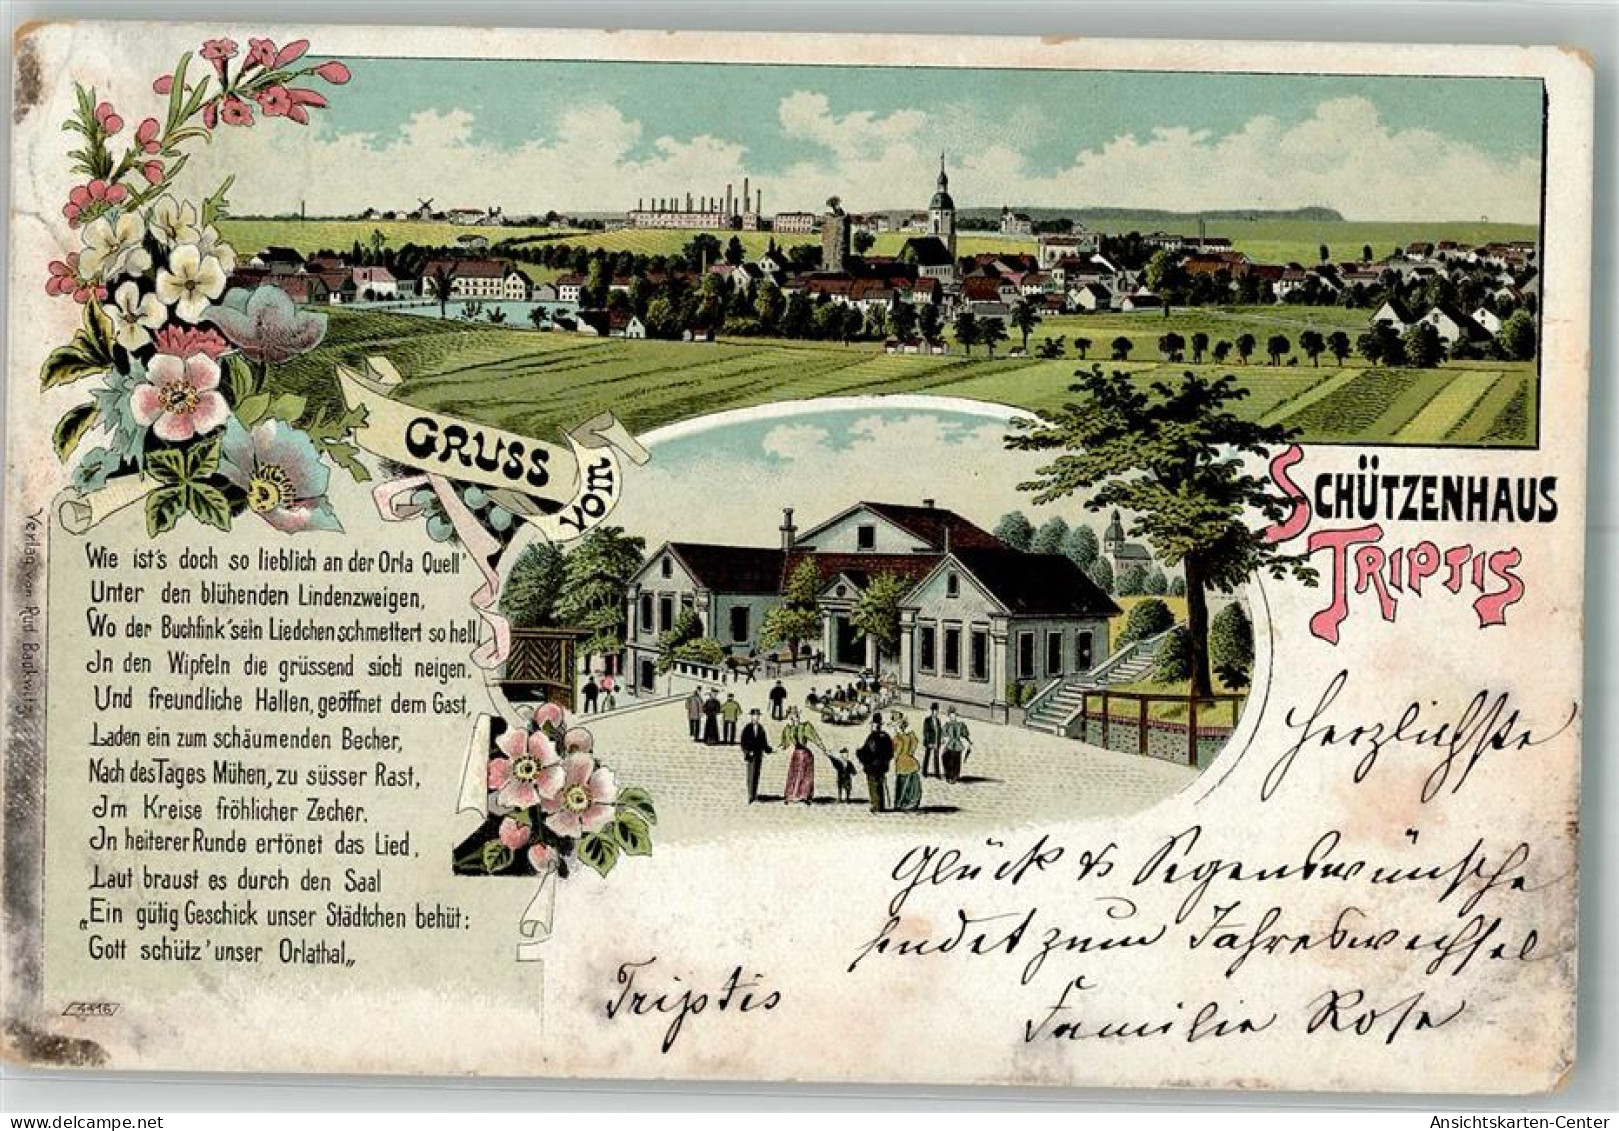 GRUSS
vom
SCHÜTZENHAUS
TRIPTIS
Wie ist's doch so lieblich an der Orla Quell'
Unter den blühenden Lindenzweigen,
Wo der Buchfink sein Liedchen schmettert so hell,
In den Wipfeln die grüssend sich neigen.
Und freundliche Hallen, geöffnet dem Gast,
Laden ein zum schäumenden Becher,
Nach des Tages Mühen, zu süsser Rast,
Im Kreise fröhlicher Zecher.
In heiterer Runde ertönet das Lied,
Laut braust es durch den Saal
„Ein gütig Geschick unser Städtchen behüt:
Gott schütz' unser Orlathal„
4416
Verlag von Rud. Backwitz
Herzlichste
Glück & Segenswünsche
sendet zum Jahreswechsel
Triptis
Familie Rose
Ansichtskarten-Center